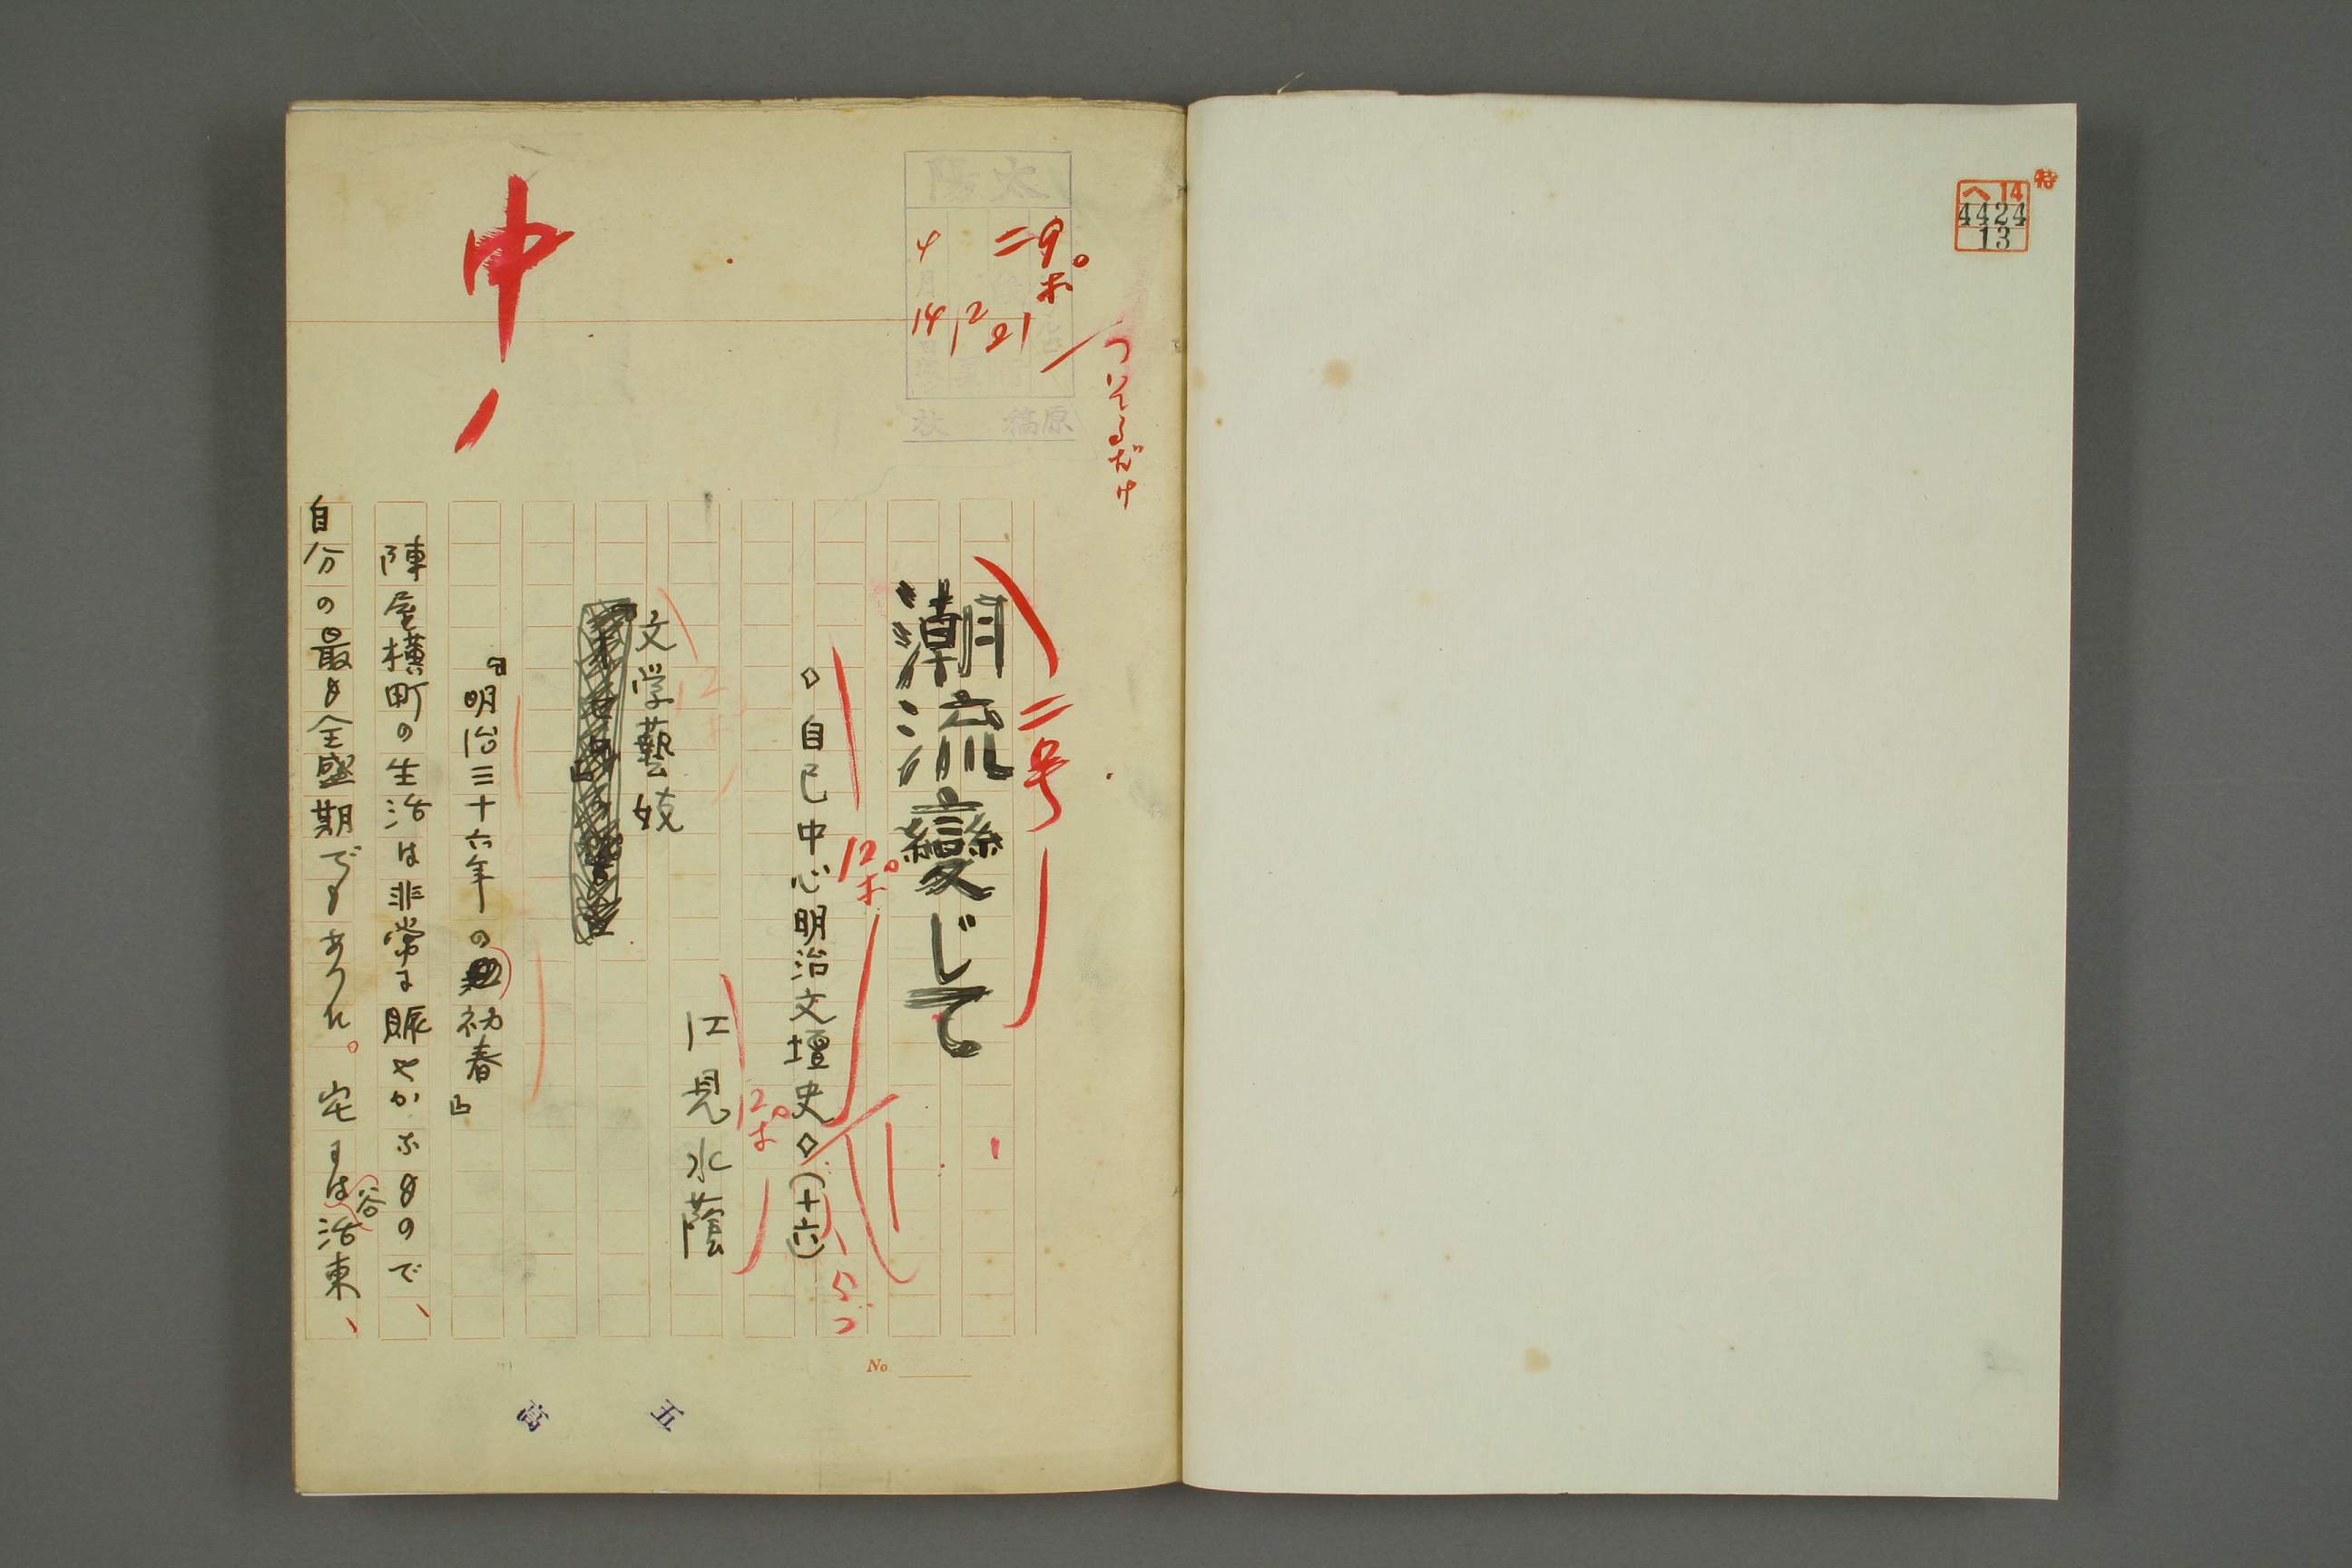 特
ヘ14
4424
13
太陽
二 9ポ
4月14日
12
21
原稿
ついてるだけ
中
潮流變じて
二号
◇自己中心明治文壇史◇(十六)
12ポ
江見水蔭
12ポ
文学藝妓
12ポ
『明治三十六年の初春』
陣屋横町の生活は非常に賑やかなもので、
自分の最も全盛期でもあつた。宅には谷活東、
No
五